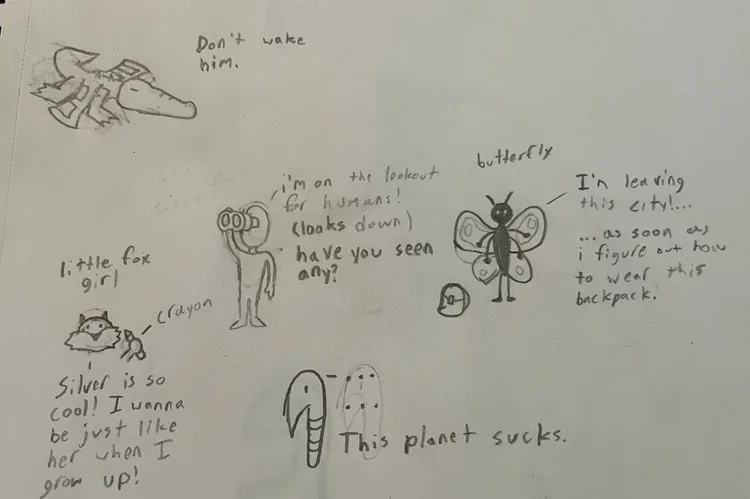 Don't wake
him.
i'm on the lookout
for humans!
(looks down)
have you seen
any?
butterfly
I'm leaving
this city!....
... as soon as
i figure out how
to wear this
backpack.
little fox
girl
crayon
Silver is so
cool! I wanna
be just like
her when I
grow up!
This planet sucks.